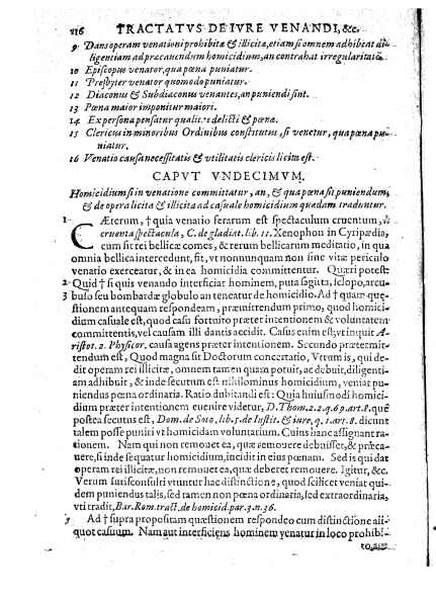 116 TRACTATVS DE IVRE VENANDI, &c.
9 Dans operam venationi prohibitæ & illicitæ, etiam si omnem adhibeat di
ligentiam ad præcauendum homicidium, an contrahat irregularitatē
10 Episcopus venator, qua pœna puniatur.
11 Presbyter venator quomodo puniatur.
12 Diaconus & Subdiaconus venantes, an puniendi sint.
13 Pœna maior imponitur maiori.
14 Ex persona pensatur qualitas delicti & pœna.
15 Clericus in minoribus Ordinibus constitutus, si venetur, qua pœna pu-
niatur.
16 Venatio causa necessitatis & vtilitatis clericis licita est.
CAPVT VNDECIMVM.
Homicidium si in venatione committatur, an, & qua pœna sit puniendum,
& de opera licita & illicita ad casuale homicidium quædam traduntur.
1 CÆterum, † quia venatio ferarum est spectaculum cruentum, l.
cruenta spectacula, C. de gladiat. lib. 11. Xenophon in Cyripædia,
cum sit rei bellicæ comes, & rerum bellicarum meditatio, in qua
omnia bellica intercedunt, fit, vt nonnunquam non sine vitæ periculo
venatio exerceatur, & in ea homicidia committentur. Quæri potest:
2 Quid † si quis venando interficiat hominem, puta sagitta, telo, arcu-
3 bulo seu bombardæ globulo an teneatur de homicidio. Ad † quam quę-
stionem antequam respondeam, præmittendum primo, quod homici-
dium casuale est, quod casu fortuito præter intentionem & voluntatem
committentis, vel causam illi dantis accidit. Casus enim est, vt inquit A-
ristot. 2. Physicor. causa agens præter intentionem. Secundo prætermit-
tendum est, Quod magna sit Doctorum concertatio, Vtrum is, qui de-
dit operam rei illicitæ, omnem tamen quam potuit, ac debuit, diligenti-
am adhibuit, & inde secutum est nihilominus homicidium, veniat pu-
niendus pœna ordinaria. Ratio dubitandi est: Quia huiusmodi homici-
dium præter intentionem euenire videtur, D. Thom. 2. 2. q. 69. art. 8. quę
postea secutus est, Dom. de Soto, lib. 5. de Iustit. & iure, q. 1. art. 8. dicunt
talem posse puniri vt homicidam voluntarium. Cuius hanc assignant ra-
tionem. Nam qui non remouet ea, quæ remouere debuisset, & præca-
uere, si inde sequatur homicidium, incidit in eius pœnam. Sed is qui dat
operam rei illicitæ, non remouet ea, quæ deberet remouere. Igitur, &c.
Verum iurisconsulti vtuntur hac distinctione, quod scilicet veniat qui-
dem puniendus talis, sed tamen non pœna ordinaria, sed extraordinaria,
vti tradit, Bar. Rom. tract. de homicid. par. 3. n. 36.
Ad † supra propositam quæstionem respondeo cum distinctione ali-
quot casuum. Nam aut interficiens hominem venatur in loco prohibi-